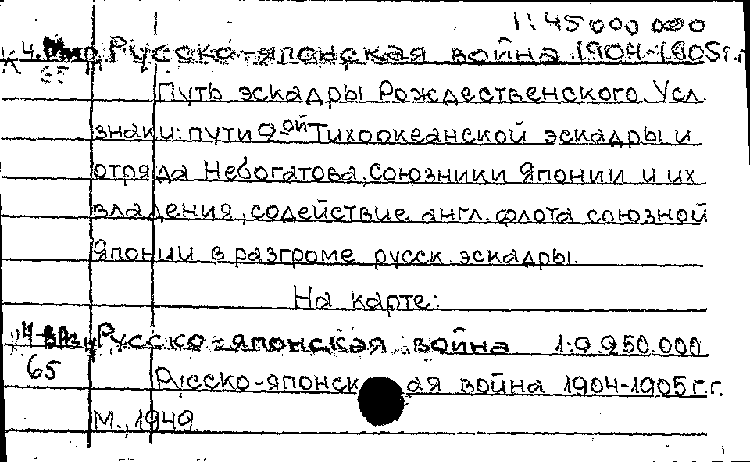 1:45000000
Русско-японская война 1904-1905г.г
65
Путь эскадры Рождественского. Усл
знаки: пути 2ой Тихоокеанской эскадры и
отряда Небогатова, союзники Японии и их
владения, содействие англ. флота союзной
Японии в разгроме русск. эскадры.
На карте:
Русско-японская война 1:9 950.000
65
Русско-японская война 1904-1905г.г.
М., 1949